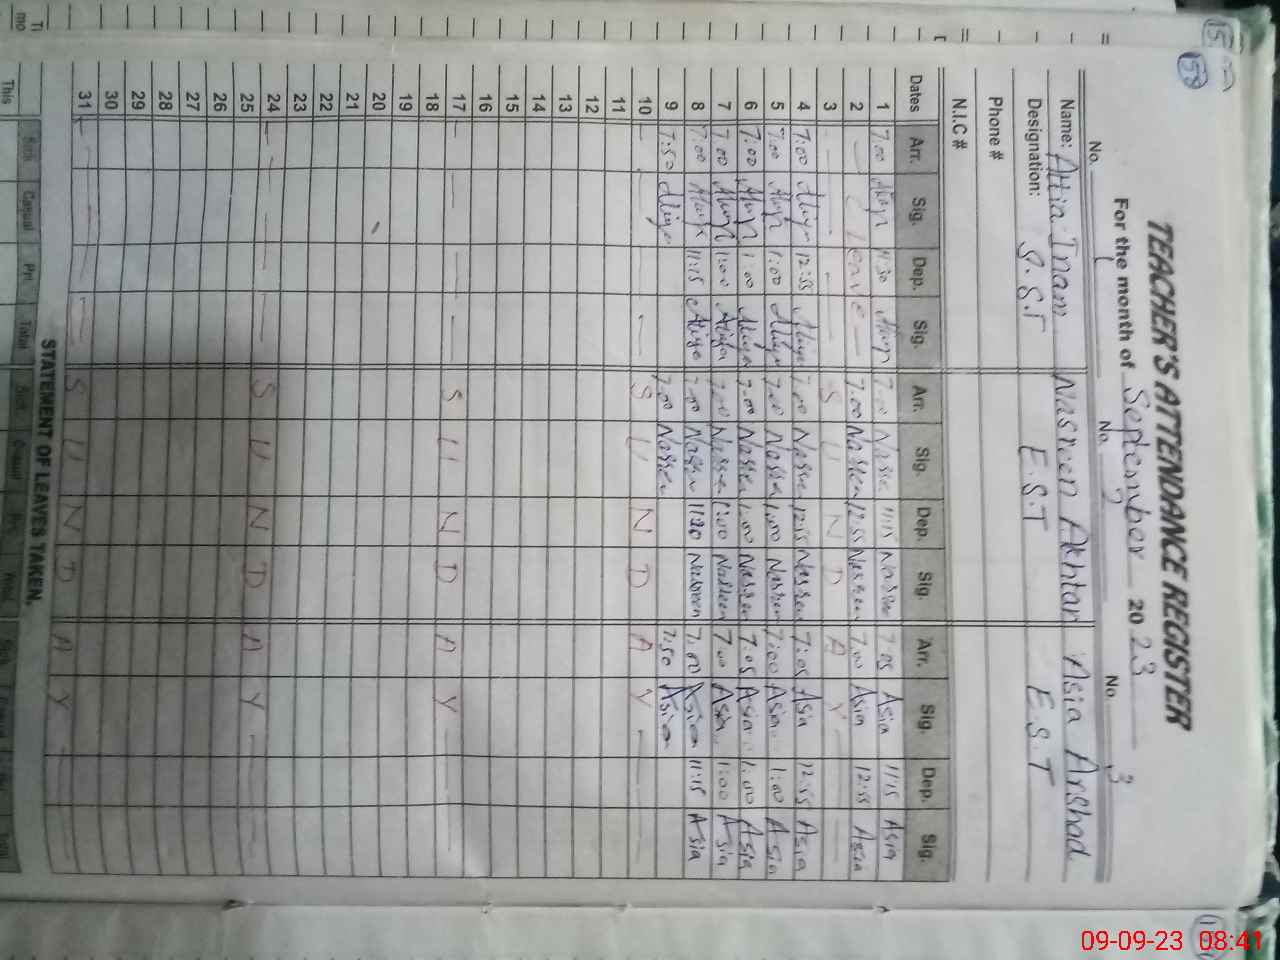 TEACHER'S ATTENDANCE REGISTER
For the month of September 2023
No. 1 No. 2 No. 3
Name: Nasreen Akhtar Asia Arshad
Designation: S.S.T E.S.T E.S.T
Phone #
N.I.C #
Dates Arr. Sig. Dep. Sig. Arr. Sig. Dep. Sig. Arr. Sig. Dep. Sig.
1 7:00 11:30 7:00 11:15 7:05 Asia 11:15 Asia
2 Leave 7:00 12:55 7:00 Asia 12:55 Asia
3 S U N D A Y
4 7:00 12:55 7:00 12:55 7:05 Asia 12:55 Asia
5 7:00 1:00 7:00 1:00 7:00 Asia 1:00 Asia
6 7:00 1:00 7:00 1:00 7:05 Asia 1:00 Asia
7 7:00 1:00 7:00 1:00 7:00 Asia 1:00 Asia
8 7:00 11:15 7:00 11:20 Nasreen 7:00 Asia 11:15 Asia
9 7:50 7:00 7:50 Asia
10 S U N D A Y
11
12
13
14
15
16
17 S U N D A Y
18
19
20
21
22
23
24 S U N D A Y
25
26
27
28
29
30
31 S U N D A Y
STATEMENT OF LEAVES TAKEN.
Sick Casual Pri Total Sick Casual
This
09-09-23 08:41